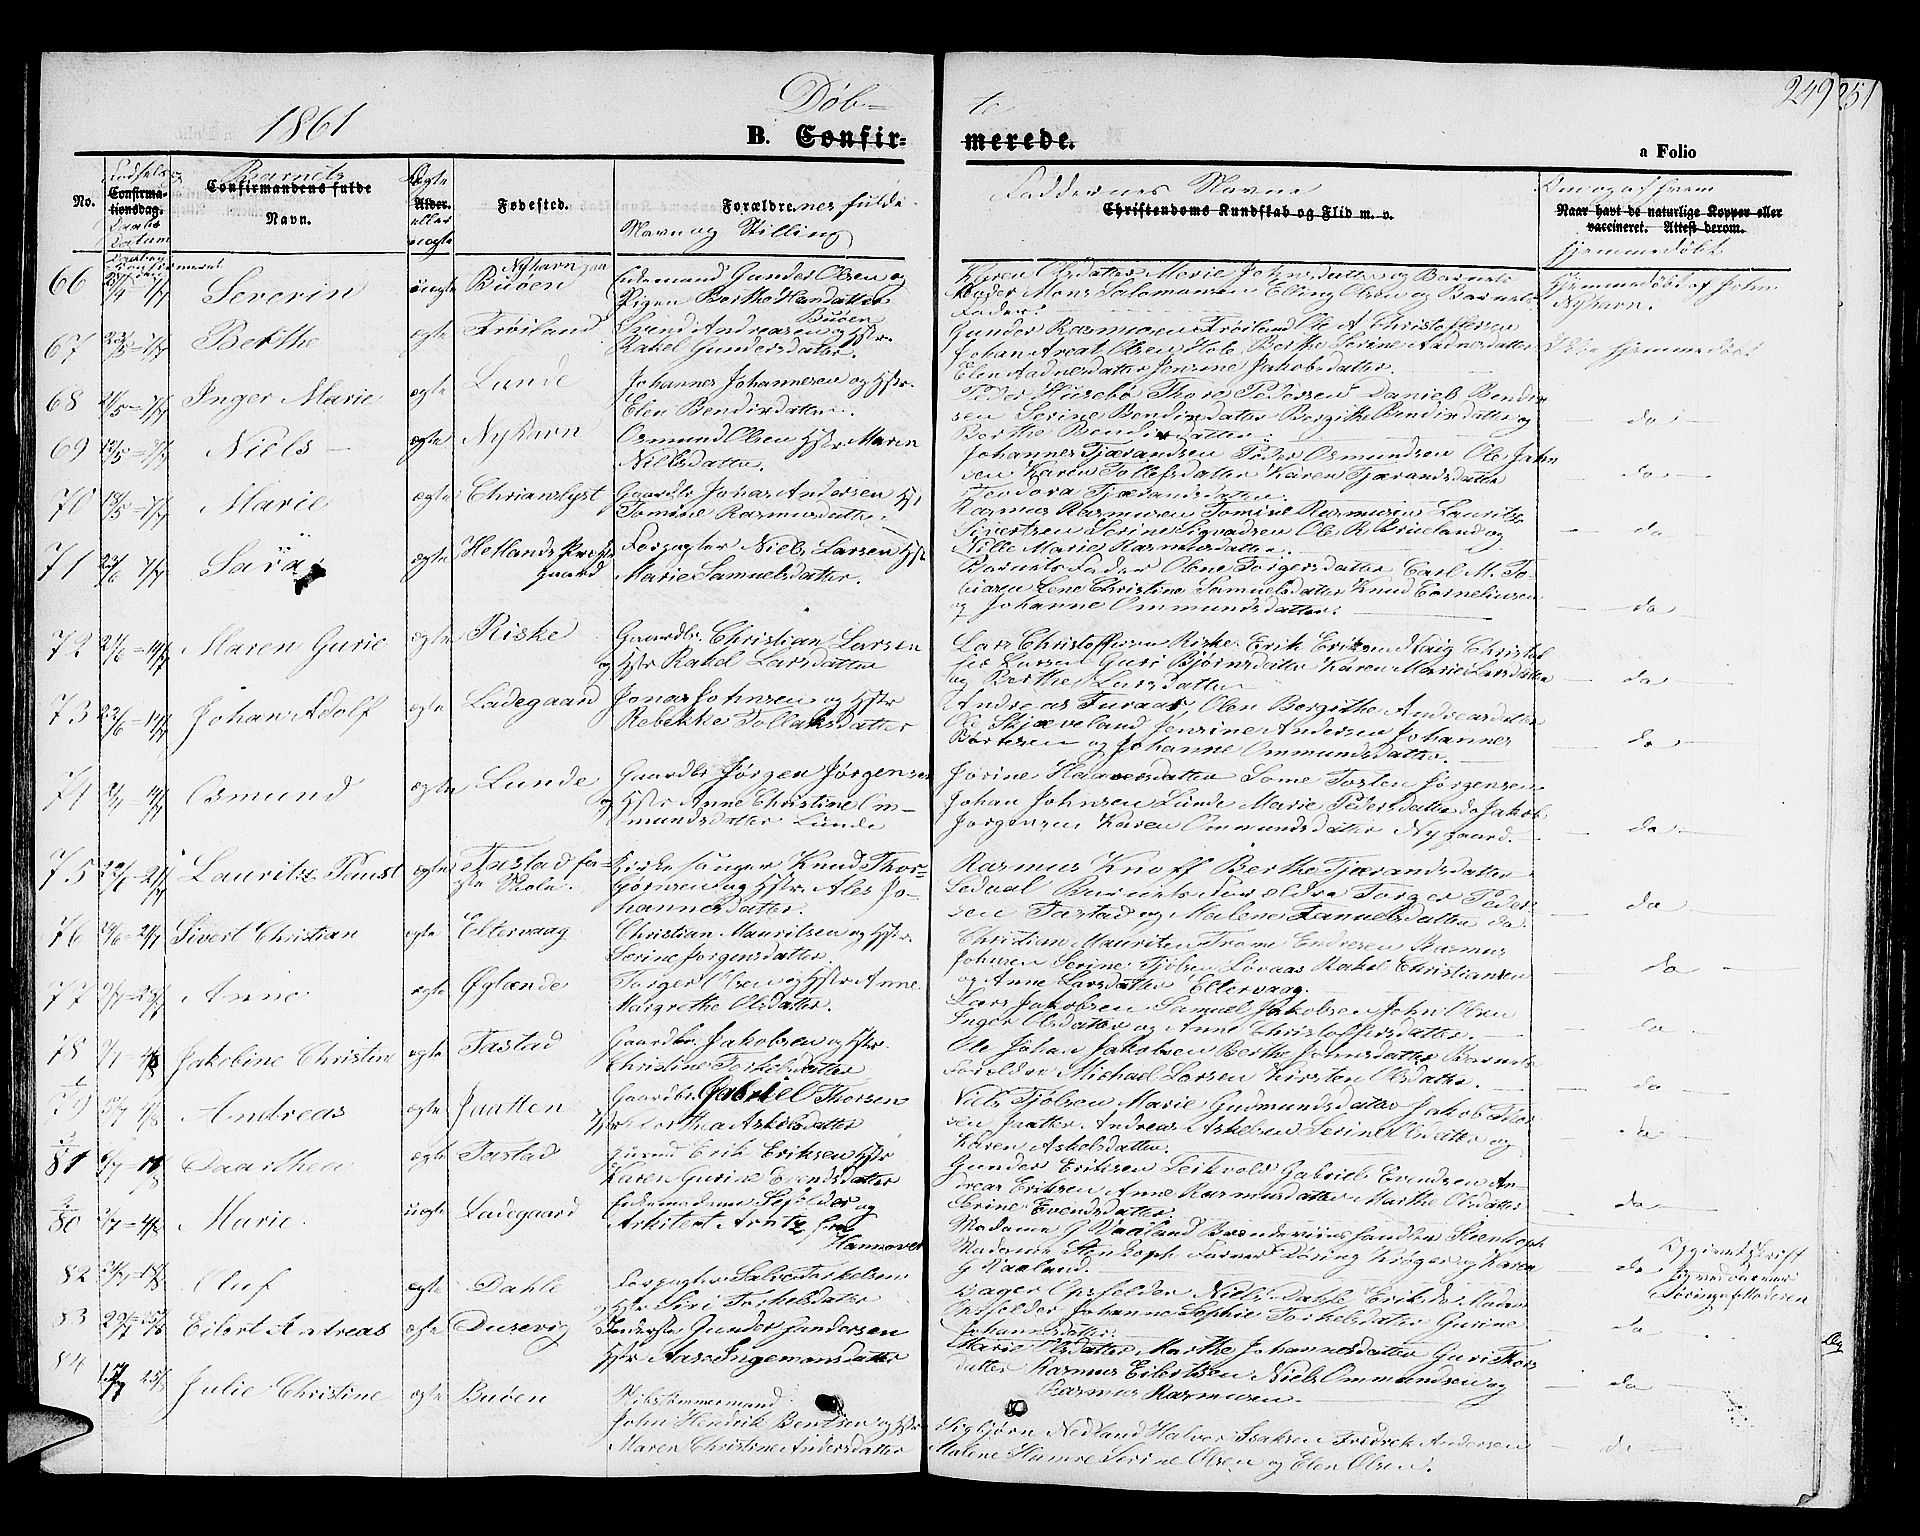 1861
Døb-
te
249
251
B. Confir-
merede.
a Folio
No.
Fødsels og
Confirma-
tionsdag.
Daabs
Datum
Barnets
Confirmandens fulde
Navn.
Ægte
Alder.
eller
uægte
Fødested.
Forældre.nes fulde
Navn og Stilling
Faddernes Navne
Christendoms Kundskab og Flid m. v.
Om og af hvem
Naar havt de naturlige Kopper eller
vaccineret. Attest derom.
hjemmedøbt
66 Severin uægte Nyhavn paa Buøen Enkemand Gunder Olsen og
Pigen Berthe Hansdatter
Buøen
Karen Olsdatter Marie Johnsdatter og Barnets
Moder Mons Salomonsen Elling Olsen og Barnets
Fader.
Hjemmedøbt af John
Nyhavn.
67 23/5 = 7/7 Berthe ægte Frøiland Svend Andreasen og Hstr.
Rakel Gundersdatter.
Gunder Rasmusen Frøiland Ole A Christoffersen
Johan Areat Olsen Hole Berthe Serine Aadnesdatter
Elen Aadnesdatter Jensine Jakobsdatter.
Ikke hjemmedøbt
68 21/5 = 7/7 Inger Marie ægte Lunde Johannes Johannesen og Hstr.
Elen Bendixdatter.
Peder Husebø Thore Pedersen Daniel Bendix-
sen Serine Bendixdatter Bergithe Bendixdatter og
Berthe Bendixdatter.
do
69 12/5 = 7/7 Niels ægte Nyhavn Osmund Olsen Hstr. Maren
Nielsdatter.
Johannes Tjærandsen Peder Osmundsen Ole John-
sen Karen Tollefsdatter Karen Tjærandsdatter
Teodora Tjærandsdatter.
do
70 18/5 = 7/7 Marie ægte Chrianslyst Gaardbr. Johas Andersen Hst
Tomine Rasmusdatter.
Rasmus Rasmusen Tomine Rasmusen Laurits
Sivertsen Serine Sigvadsen Ole R. Brueland og
Lille Marie Rasmusdatter.
do
71 23/6 7/7 Sara ægte Hetlands Præste
gaard
Forpagter Niels Larsen Hstr
Marie Samuelsdatter.
Barnets Fader Olene Torgersdatter Carl M. To-
biasen Lene Christine Samuelsdatter Knud Corneliusen
og Johanne Ommundsdatter.
do
72 21/6 = 14/7 Maren Gurie ægte Riske Gaardbr. Christian Larsen
og Hstr Rakel Larsdatter
Lars Christoffersen Riske. Erik Eriksen Haig Christof-
fer Larsen Guri Bjørnsdatter Karen Marie Larsdatter
og Berthe Larsdatter
do
73 22/6 = 14/7 Johan Adolf ægte Ladegaard Jonas Johnsen og Hstr
Rebekke Tollaksdatter
Andreas Furaas, Olen Bergithe Andreasdatter
Ole Skjæveland Jensine Andersen Johannes
Bertesen og Johanne Ommundsdatter.
do
74 Osmund ægte Lunde Gaardbr Jørgen Jørgensen
og Hstr Anne Christine Om-
mundsdatter Lunde
Jørine Haavesdatter Some Tosten Jørgensen
Johan Johnsen Lunde Marie Pedersdatter do Jakob
Jørgensen Karen Ommundsdatter Nygaard.
do
75 Lauritz Faust ægte Tastad fa-
ste Skole.
Kirkesanger Knud Thor-
bjørnsen og Hstr. Ales Jo-
hannesdatter.
Rasmus Knoff Berthe Tjærandsdatter
Ledaal Barnets Forældre Torger Peder-
sen Tastad og Malene Samuelsdatter do.
do
76 24/6 = 21/7 Sivert Christian ægte Eltervaag Christian Mauritsen og Hstr.
Serine Jørgensdatter.
Christian Mauritsen Trome Endresen Rasmus
Johnsen Serine Tjølsen Lovaas Rakel Christiansen
og Anne Larsdatter Eltervaag.
do
77 Anne ægte Øglænde Torger Olsen og Hstr Anne
Margrethe Olsdatter.
Lars Jakobsen Samuel Jakobsen John Olsen
Inger Olsdatter og Anne Christoffersdatter.
do
78 Jakobine Christine ægte Tastad Gaardbr. Jakobsen og Hstr.
Christine Torkelsdatter
Ole Johan Jakobsen Berthe Johnsdatter Barnets
Forældre Michael Larsen Kirsten Olsdatter.
do
79 Andreas ægte Jaatten Gaardbr. Gabriel Thorsen
Hstr Dorthea Askelsdatter
Niels Tjølsen Marie Gudmundsdatter Jakob Thor-
sen Jaatten Andreas Askelsen Serine Olsdatter og
Karen Askelsdatter.
do
81 Daarthea ægte Tastad Erik Eriksen Hstr
Karen Gurine Evendsdatter
Gunder Eriksen Leikvold Gabriel Evendsen An-
dreas Eriksen Anne Rasmusdatter Marthe Olsdatter
Serine Evendsdatter.
do
80 Marie. uægte Ladegaard Enkemadame Sejelder og
Arkitekt Arntz fra
Hannover
Madame G Vaaland Brænderiinsp Steenkopf
Madame Stenkoph Farver Døring Krøger og Karen
G Vaaland.
do
82 Oluf ægte Dahle Forpagter Salve Torkelsen
og Hstr Siri Torkelsdatter
Bager Opsfelder Niels Dahle Erik do Madam
Opsfelder Johanne Sophie Torkelsdatter Gurine
Johannesdatter.
do
83 29/7 25/8 Eilert Andreas ægte Dusevig Gunder Gundersen
Hstr Aase Ingemansdatter
Marie Olsdatter Marthe Johannesdatter Guri Thors
datter Rasmus Eilertsen Niels Ommundsen og
Rasmus Rasmusen.
do
84 Julie Christine ægte Buøen Skibstømmermand
John Henrik Bentsen og Hstr
Maren Christine Andersdatter
Sigbjørn Nedland Halvor Isaksen Fredrek Andersen
Malene Hamre Serine Olsen og Elen Olsen.
do